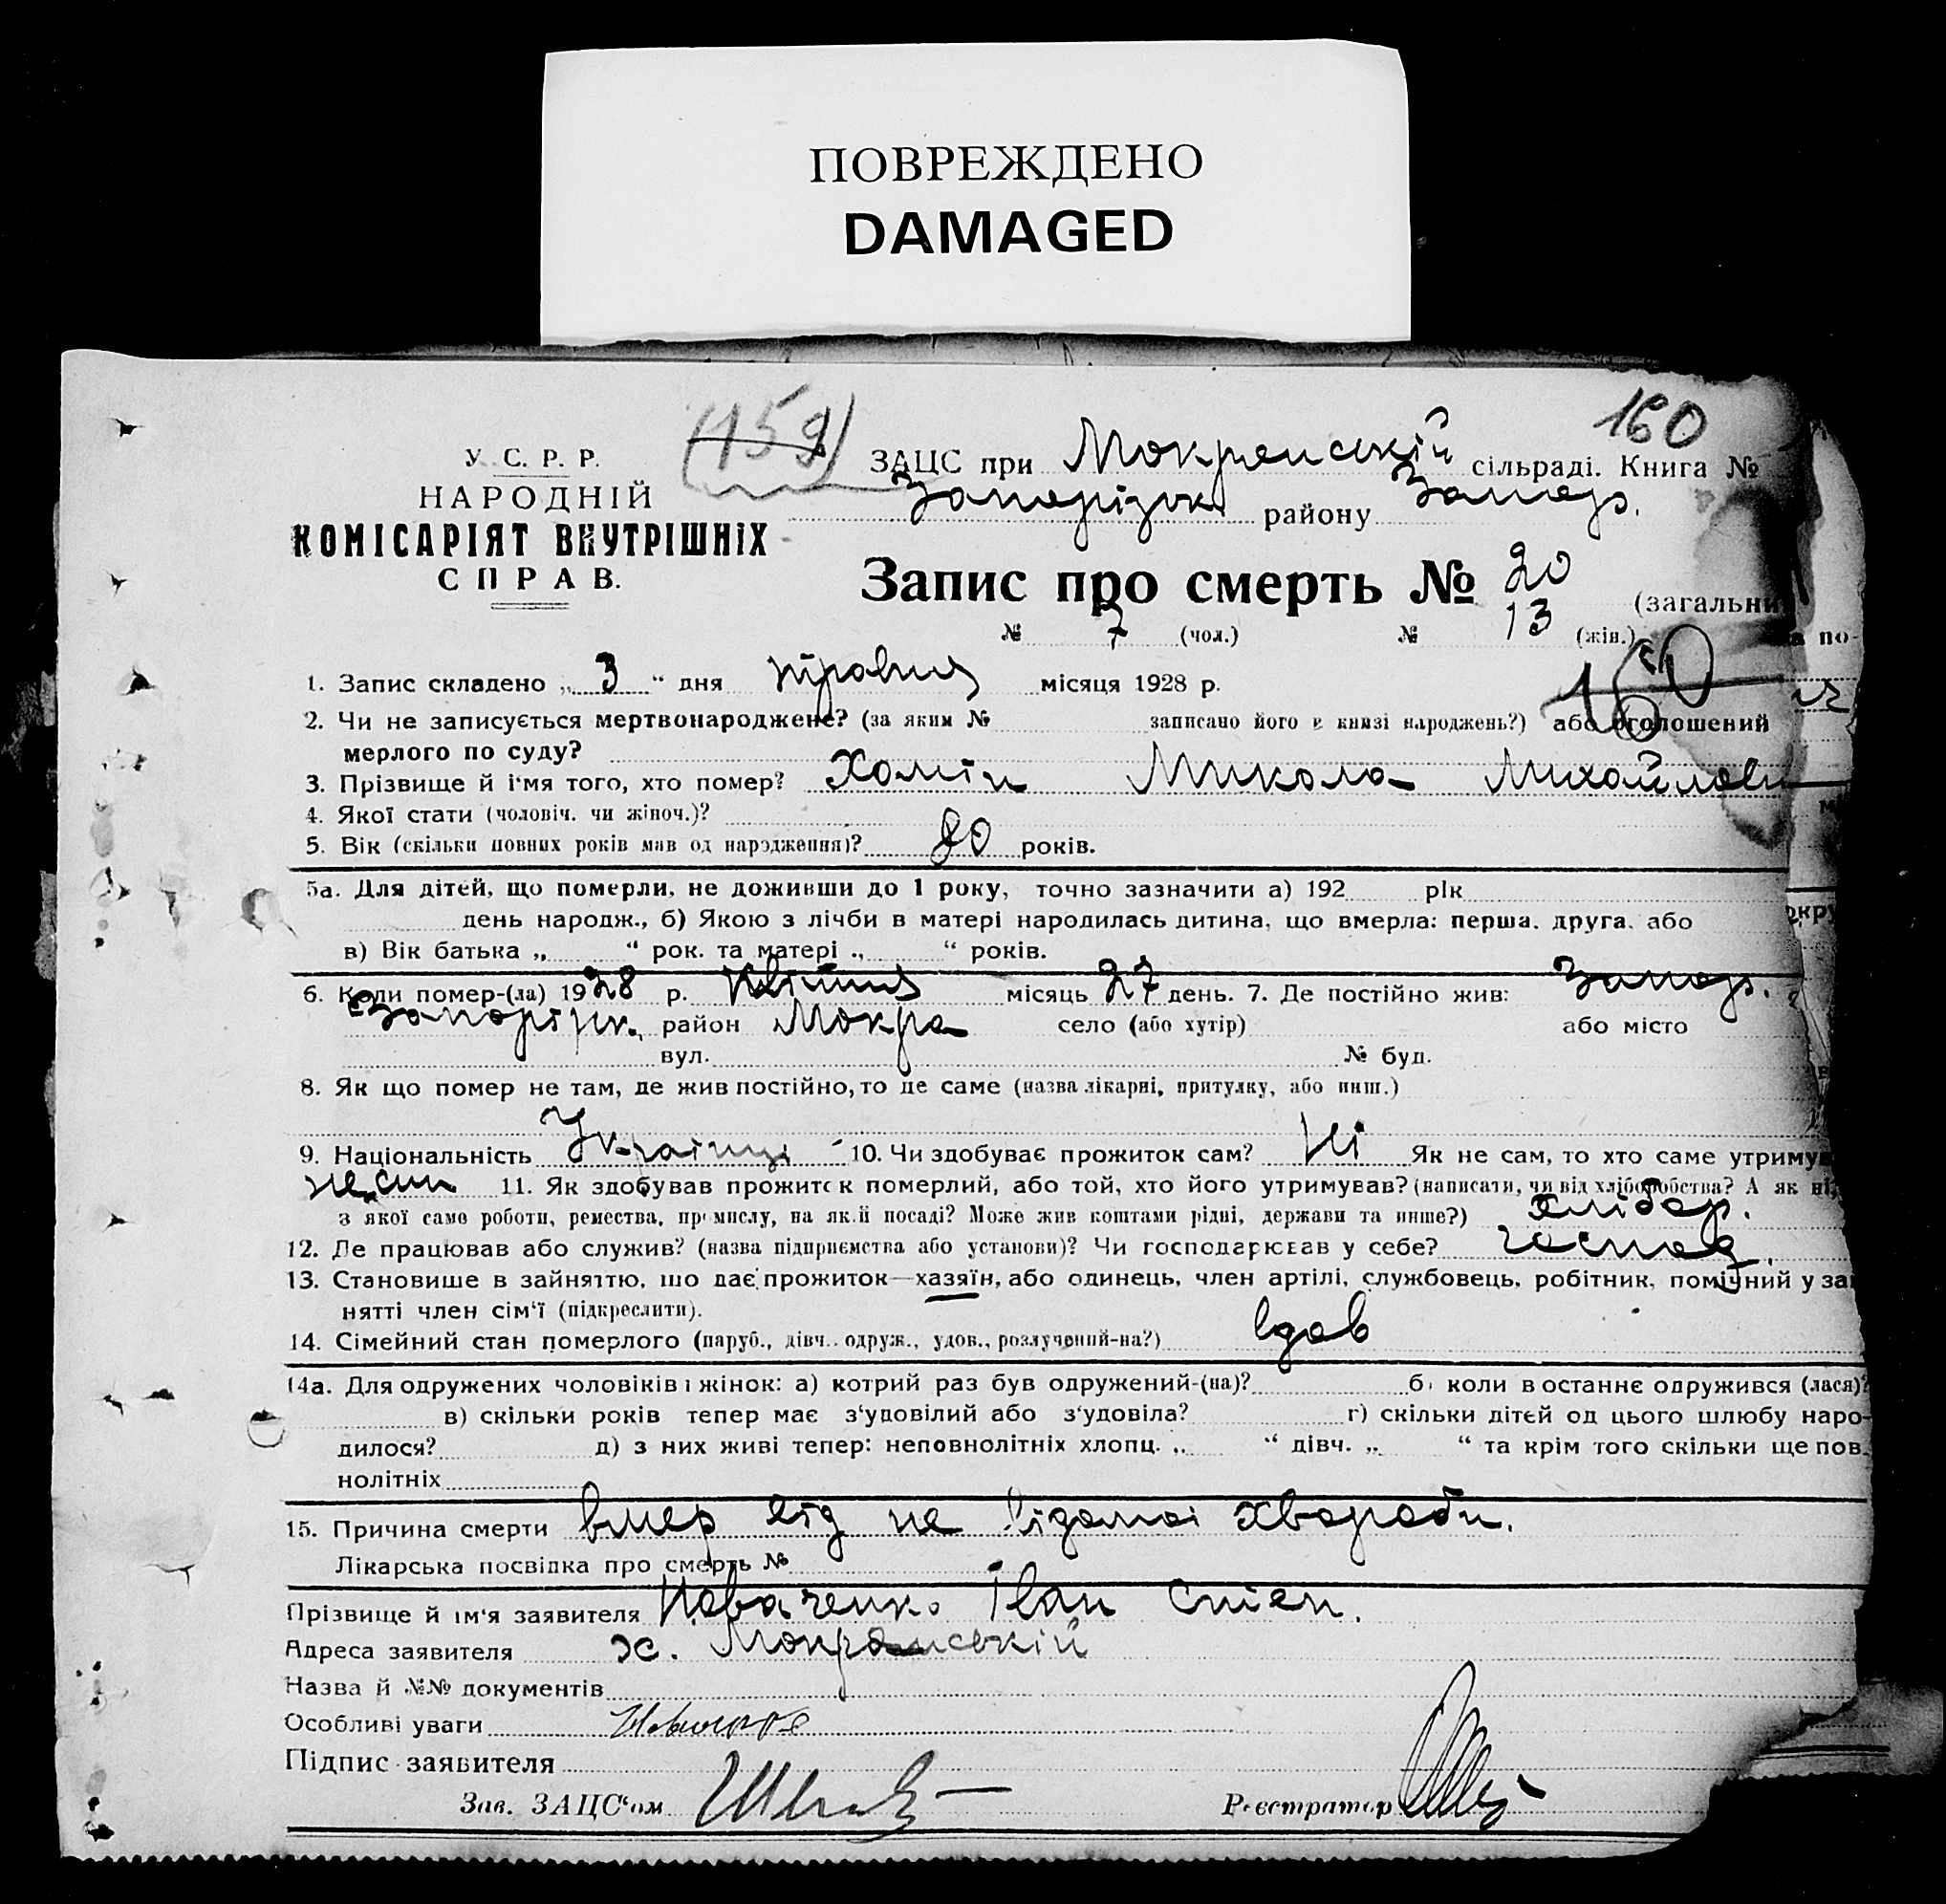 ПОВРЕЖДЕНО
DAMAGED
160
(159)
У. С. Р. Р.
НАРОДНІЙ
КОМІСАРІЯТ ВНУТРІШНІХ
СПРАВ.
ЗАЦС при Мокрянській сільраді. Книга №
Запорізьк. району Запор.
Запис про смерть № 20 (загальни
№ 7 (чол.) № 13 (жін.)
1. Запис складено „ 3 “ дня травня місяця 1928 р. 160
2. Чи не записується мертвонароджене? (за яким № записано його в книзі народжень?) або оголошений
мерлого по суду?
3. Прізвище й ім'я того, хто помер? Хомін Микола Михайлови
4. Якої стати (чоловіч. чи жіноч.)?
5. Вік (скільки повних років мав од народження)? 80 років.
5а. Для дітей, що померли, не доживши до 1 року, точно зазначити а) 192 рік
день народж., б) Якою з лічби в матері народилась дитина, що вмерла: перша, друга, або
в) Вік батька „ “ рок. та матері „ “ років.
6. Коли помер-(ла) 1928 р. квітня місяць 27 день. 7. Де постійно жив: Запор.
Запоріжк. район Мокра село (або хутір) або місто
вул. № буд.
8. Як що помер не там, де жив постійно, то де саме (назва лікарні, притулку, або инш.)
9. Національність Українці 10. Чи здобуває прожиток сам? Ні Як не сам, то хто саме утриму
син 11. Як здобував прожиток померлий, або той, хто його утримував? (написати, чи від хліборобства? А як ні,
з якої само роботи, ремества, промислу, на якій посаді? Може жив коштами рідні, держави та инше?) хлібор.
12. Де працював або служив? (назва підприємства або установи)? Чи господарював у себе? господ.
13. Становище в зайняттю, що дає прожиток—хазяїн, або одинець, член артілі, службовець, робітник, помічний у за
нятті член сім'ї (підкреслити).
14. Сімейний стан померлого (паруб., дівч., одруж., удов., розлучений-на?) вдов
14а. Для одружених чоловіків і жінок: а) котрий раз був одружений-(на)? б) коли в останнє одружився (лася)?
в) скільки років тепер має з'удовілий або з'удовіла? г) скільки дітей од цього шлюбу наро-
дилося? д) з них живі тепер: неповнолітніх хлопц. „ “ дівч. „ “ та крім того скільки ще пов-
нолітніх
15. Причина смерти вмер від не відомої хвороби.
Лікарська посвідка про смерть №
Прізвище й ім'я заявителя Іван Степ.
Адреса заявителя х. Мокрянській
Назва й №№ документів
Особливі уваги
Підпис заявителя
Зав. ЗАЦС'ом Реєстратор